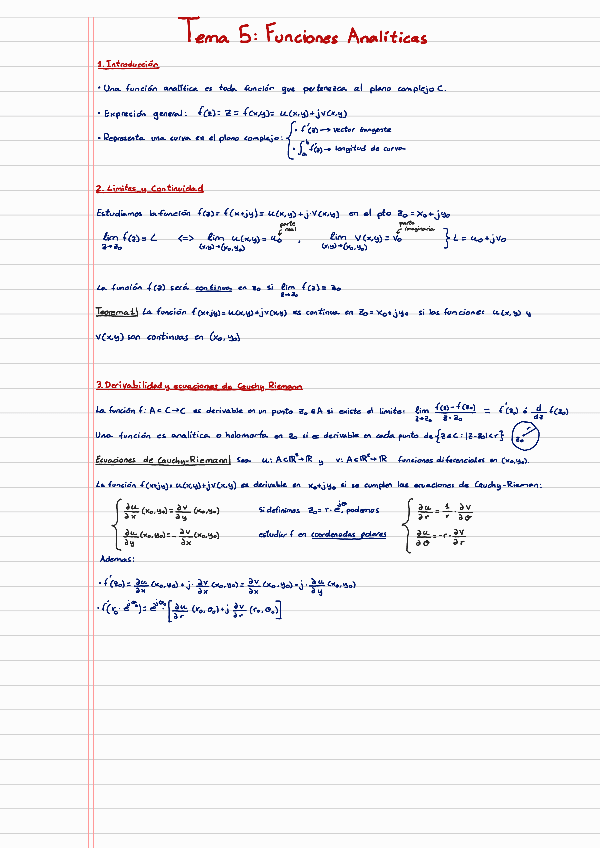 Tema 5: Funciones Analíticas
1. Introducción
· Una función analítica es toda función que pertenezca al plano complejo C.
· Expresión general: f(z) = z = f(x,y) = u(x,y) + j v(x,y)
· Representa una curva en el plano complejo: { · f'(z) → vector tangente
· ∫ₐᵇ f'(z) → longitud de curva
2. Límites y Continuidad
Estudiamos la función f(z) = f(x+jy) = u(x,y) + j·v(x,y) en el pto z₀ = x₀ + jy₀
lim z→z₀ f(z) = L <=> lim (x,y)→(x₀,y₀) u(x,y) = u₀ parte real , lim (x,y)→(x₀,y₀) v(x,y) = v₀ parte imaginaria } L = u₀ + jv₀
La función f(z) será continua en z₀ si lim z→z₀ f(z) = z₀
Teorema 1| La función f(x+jy) = u(x,y) + jv(x,y) es continua en z₀ = x₀ + jy₀ si las funciones u(x,y) y
v(x,y) son continuas en (x₀, y₀)
3. Derivabilidad y ecuaciones de Cauchy-Riemann
La función f: A ⊂ C → C es derivable en un punto z₀ ∈ A si existe el límite: lim z→z₀ (f(z) - f(z₀))/(z - z₀) = f'(z₀) ó d/dz f(z₀)
Una función es analítica o holomorfa en z₀ si es derivable en cada punto de {z ∈ C : |z - z₀| < r} z₀ r
Ecuaciones de Cauchy-Riemann| Sean u: A⊂R² → R y v: A⊂R² → R funciones diferenciales en (x₀,y₀).
La función f(x+jy) = u(x,y) + jv(x,y) es derivable en x₀+jy₀ si se cumplen las ecuaciones de Cauchy-Riemen:
{ ∂u/∂x (x₀,y₀) = ∂v/∂y (x₀,y₀) Si definimos z₀ = r·e^jθ, podemos { ∂u/∂r = 1/r · ∂v/∂θ
∂u/∂y (x₀,y₀) = - ∂v/∂x (x₀,y₀) estudiar f en coordenadas polares ∂u/∂θ = -r · ∂v/∂r
Además:
· f'(z₀) = ∂u/∂x (x₀,y₀) + j· ∂v/∂x (x₀,y₀) = ∂v/∂x (x₀,y₀) - j· ∂u/∂y (x₀,y₀)
· f'(r₀·e^jθ₀) = e^jθ₀ · [∂u/∂r (r₀,θ₀) + j ∂v/∂r (r₀,θ₀)]